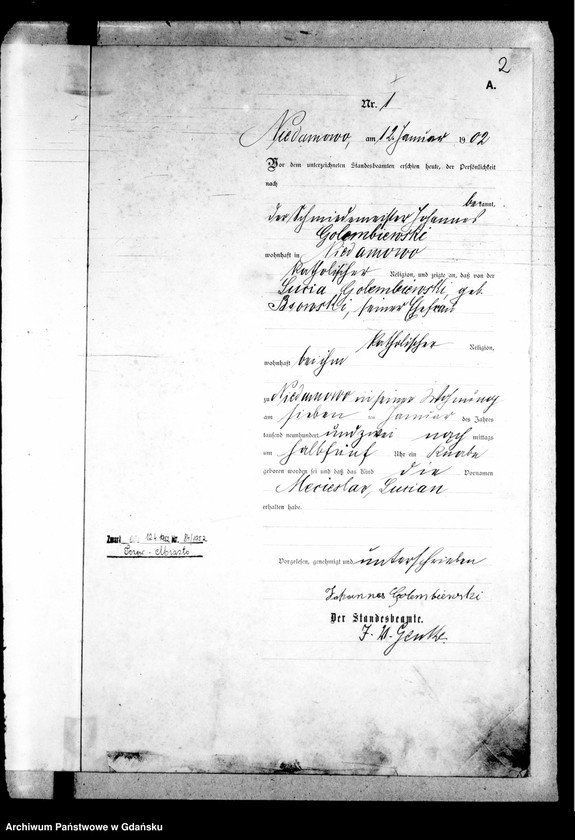 2
A.
Nr. 1
Niedamowo, am 12. Januar 1902
Vor dem unterzeichneten Standesbeamten erschien heute, der Persönlichkeit
nach
bekannt,
der Schmiedemeister Johannes
Golembiewski
wohnhaft in Niedamowo
katholischer Religion, und zeigte an, daß von der
Lucia Golembiewski, geb.
seiner Ehefrau
katholischer Religion,
wohnhaft bei ihm
zu Niedamowo in seiner Wohnung
am sieben ten Januar des Jahres
tausend neunhundert und zwei nach mittags
um halb fünf Uhr ein Knabe
geboren worden sei und daß das Kind die Vornamen
Mecieslav, Lucian
erhalten habe.
Vorgelesen, genehmigt und unterschrieben
Johannes Golembiewski
Der Standesbeamte.
Zmarł Nr.
Archiwum Państwowe w Gdańsku